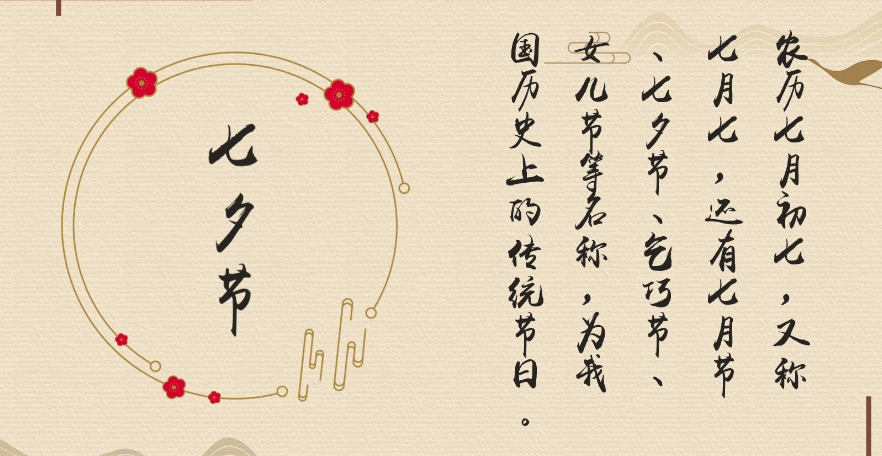 七夕节
农历七月初七，又称
七月七，还有七月节
、七夕节、乞巧节、
女儿节等名称，为我
国历史上的传统节日。